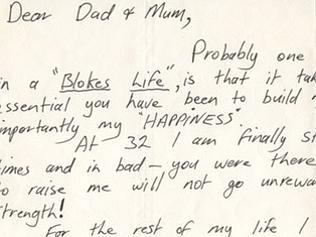 Dear Dad & Mum,
Probably one
in a "Blokes Life", is that it tak
essential you have been to build m
importantly my "HAPPINESS".
At 32 I am finally st
times and in bad — you were there
to raise me will not go unrewa
strength!
For the rest of my life I